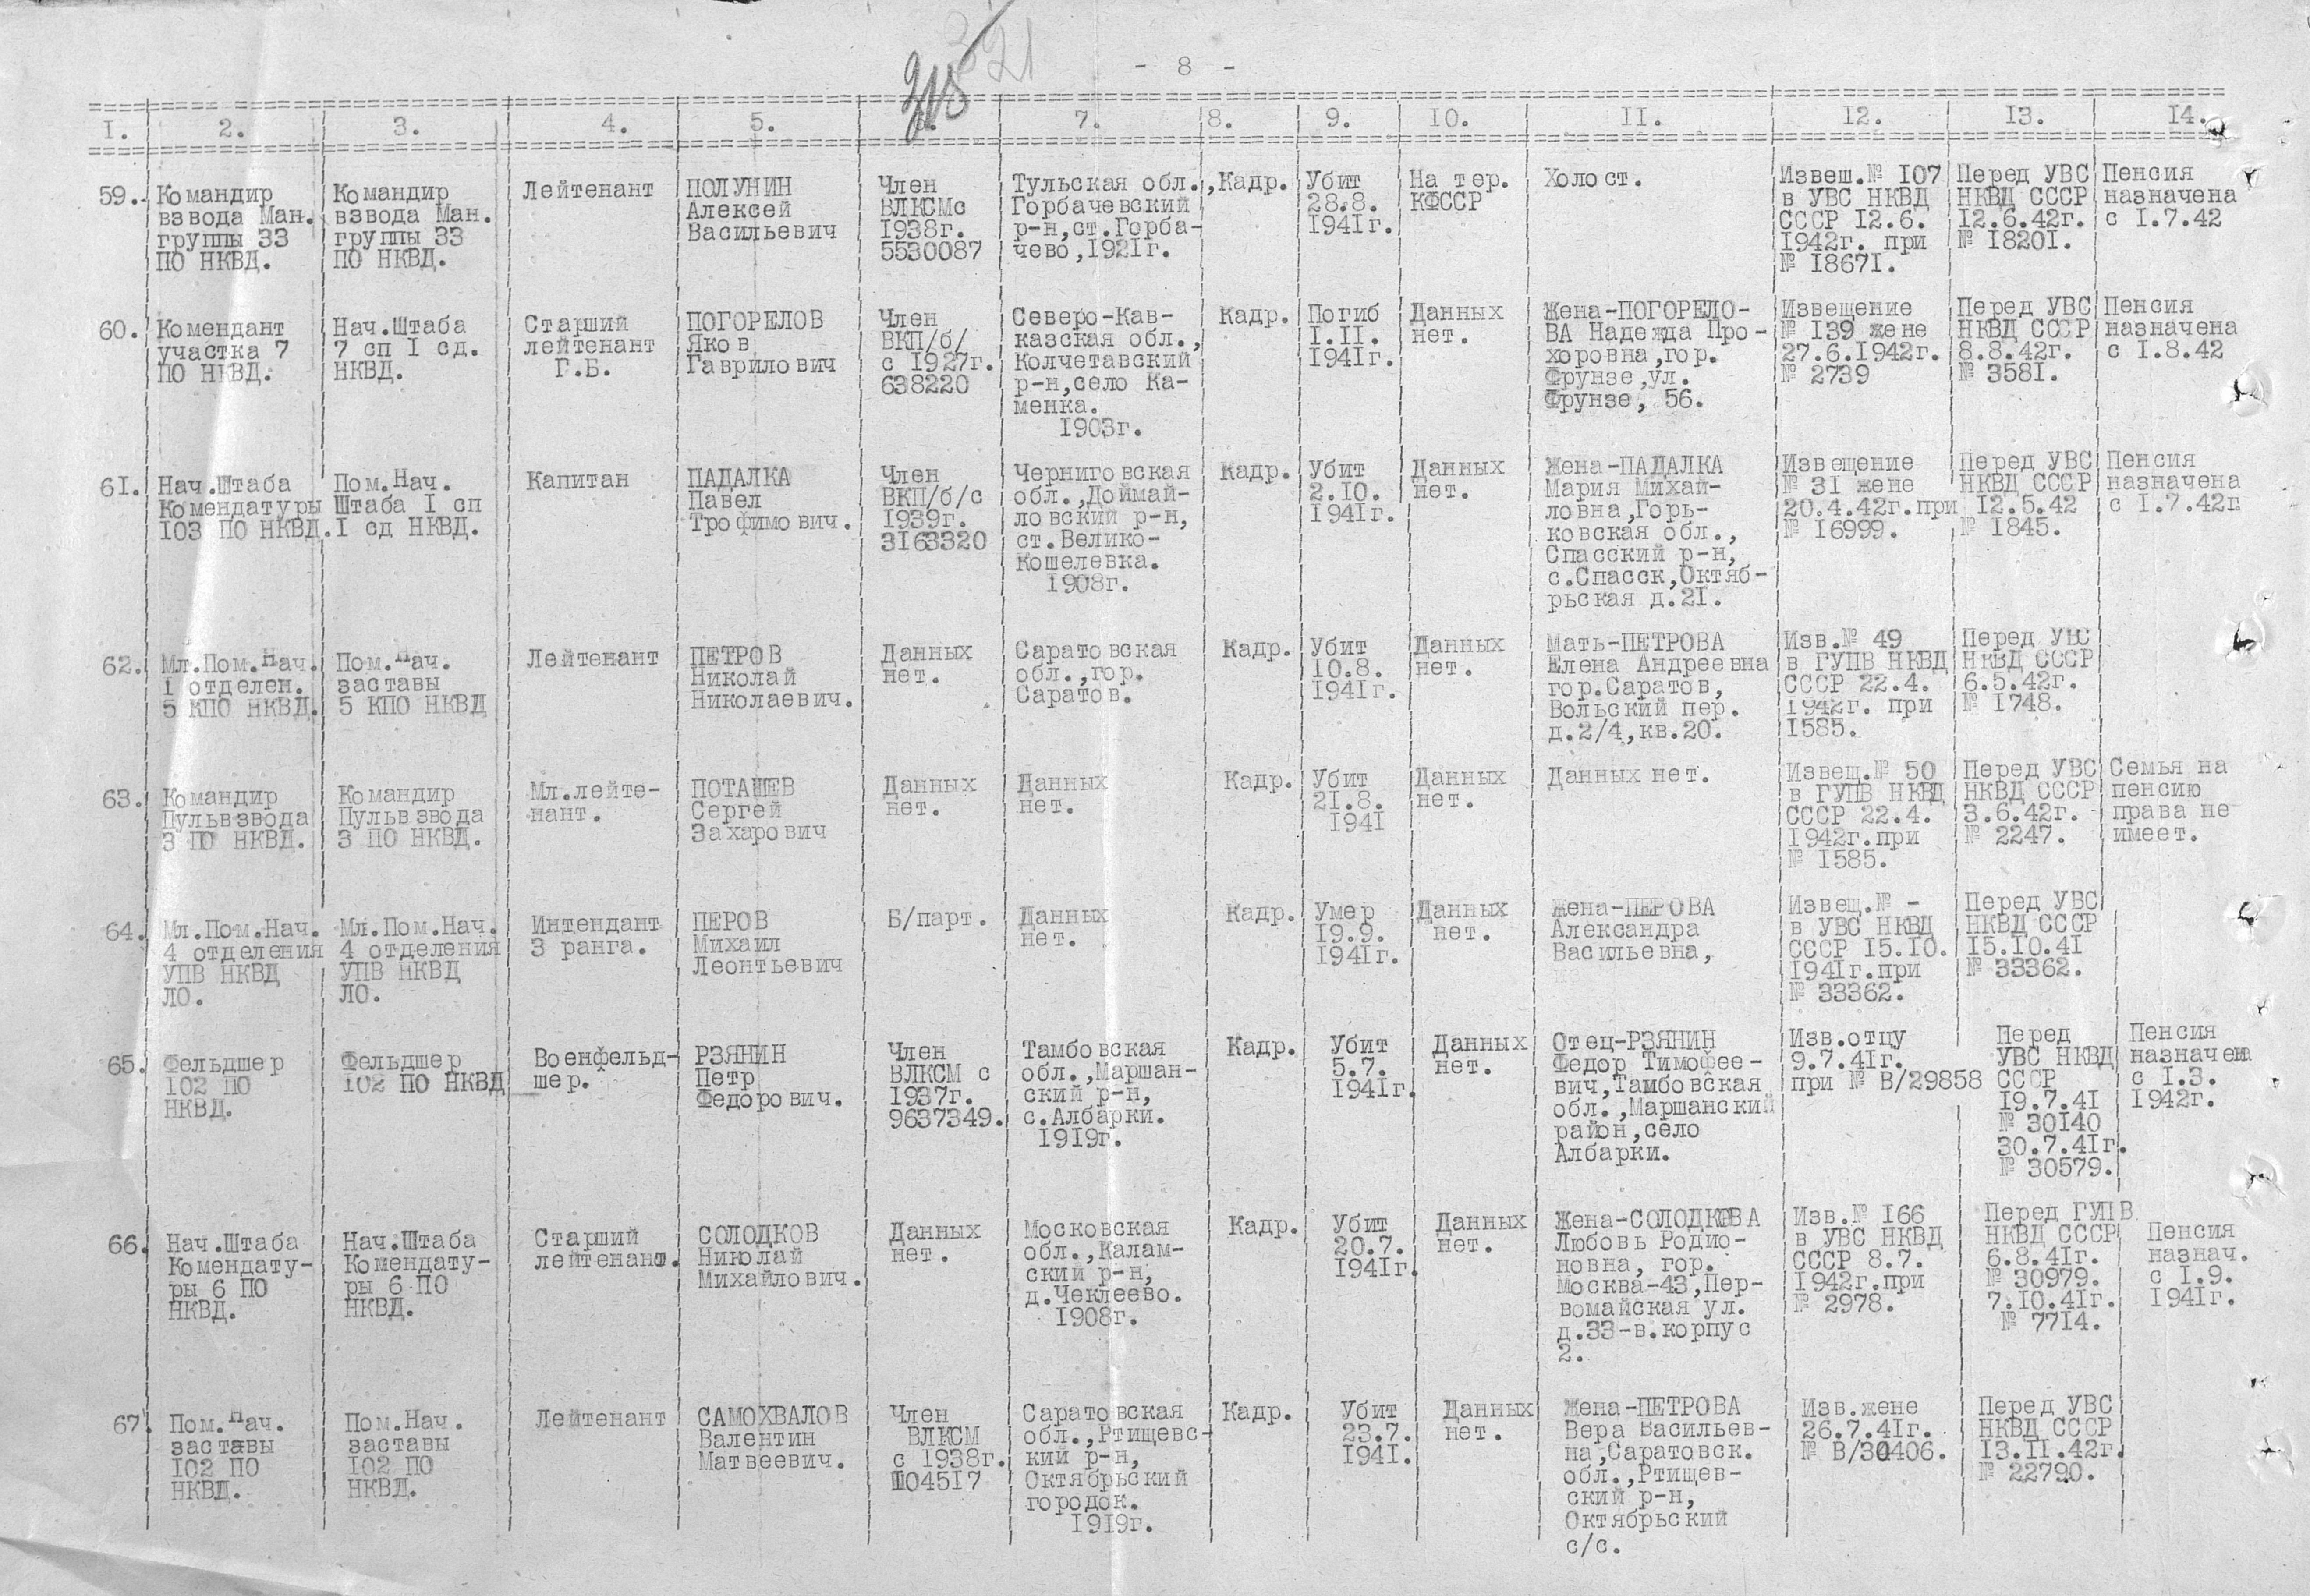 321
315
- 8 -
I. 2. 3. 4. 5. 6. 7. 8. 9. 10. II. 12. 13. 14.
59. Командир
взвода Ман.
группы 33
ПО НКВД.
Командир
взвода Ман.
группы 33
ПО НКВД.
Лейтенант
ПОЛУНИН
Алексей
Васильевич
Член
ВЛКСМс
1938г.
5530087
Тульская обл.,
Горбачевский
р-н,ст.Горба-
чево,192Iг.
Кадр.
Убит
28.8.
194Iг.
На тер.
КФССР
Холост.
Извеш.№ I07
в УВС НКВД
СССР I2.6.
1942г. при
№ I867I.
Перед УВС
НКВД СССР
12.6.42г.
№ I820I.
Пенсия
назначена
с I.7.42
60. Комендант
участка 7
ПО НКВД.
Нач.Штаба
7 сп I сд.
НКВД.
Старший
лейтенант
Г.Б.
ПОГОРЕЛОВ
Яков
Гаврилович
Член
ВКП/б/
с I927г.
638220
Северо-Кав-
казская обл.,
Колчетавский
р-н,село Ка-
менка.
I903г.
Кадр.
Погиб
I.II.
194Iг.
Данных
нет.
Жена-ПОГОРЕЛО-
ВА Надежда Про-
хоровна,гор.
Фрунзе,ул.
Фрунзе, 56.
Извещение
№ I39 жене
27.6.I942г.
№ 2739
Перед УВС
НКВД СССР
8.8.42г.
№ 358I.
Пенсия
назначена
с I.8.42
6I. Нач.Штаба
Комендатуры
I03 ПО НКВД.
Пом.Нач.
Штаба I сп
I сд НКВД.
Капитан
ПАДАЛКА
Павел
Трофимович.
Член
ВКП/б/с
1939г.
3I63320
Черниговская
обл.,Доймай-
ловский р-н,
ст.Велико-
Кошелевка.
I908г.
Кадр.
Убит
2.I0.
I94Iг.
Данных
нет.
Жена-ПАДАЛКА
Мария Михай-
ловна,Горь-
ковская обл.,
Спасский р-н,
с.Спасск,Октяб-
рьская д.2I.
Извещение
№ 3I жене
20.4.42г.при
№ I6999.
Перед УВС
НКВД СССР
I2.5.42
№ I845.
Пенсия
назначена
с I.7.42г
62. Мл.Пом.Нач.
I отделен.
5 КПО НКВД.
Пом.Нач.
заставы
5 КПО НКВД
Лейтенант
ПЕТРОВ
Николай
Николаевич.
Данных
нет.
Саратовская
обл.,гор.
Саратов.
Кадр.
Убит
I0.8.
I94Iг.
Данных
нет.
Мать-ПЕТРОВА
Елена Андреевна
гор.Саратов,
Вольский пер.
д.2/4,кв.20.
Изв.№ 49
в ГУПВ НКВД
СССР 22.4.
I942г. при
I585.
Перед УВС
НКВД СССР
6.5.42г.
№ I748.
63. Командир
Пульвзвода
3 ПО НКВД.
Командир
Пульвзвода
3 ПО НКВД.
Мл.лейте-
нант.
ПОТАШЕВ
Сергей
Захарович
Данных
нет.
Данных
нет.
Кадр.
Убит
2I.8.
I94I
Данных
нет.
Данных нет.
Извещ.№ 50
в ГУПВ НКВД
СССР 22.4.
I942г.при
№ I585.
Перед УВС
НКВД СССР
3.6.42г.
№ 2247.
Семья на
пенсию
права не
имеет.
64. Мл.Пом.Нач.
4 отделения
УПВ НКВД
ЛО.
Мл.Пом.Нач.
4 отделения
УПВ НКВД
ЛО.
Интендант
3 ранга.
ПЕРОВ
Михаил
Леонтьевич
Б/парт.
Данных
нет.
Кадр.
Умер
I9.9.
I94Iг.
Данных
нет.
Жена-ПЕРОВА
Александра
Васильевна,
Извещ.№ -
в УВС НКВД
СССР I5.I0.
I94Iг.при
№ 33362.
Перед УВС
НКВД СССР
I5.I0.4I
№ 33362.
65. Фельдшер
I02 ПО
НКВД.
Фельдшер
I02 ПО НКВД
Военфельд-
шер.
РЗЯНИН
Петр
Федорович.
Член
ВЛКСМ с
I937г.
9637349.
Тамбовская
обл.,Маршан-
ский р-н,
с.Албарки.
I9I9г.
Кадр.
Убит
5.7.
I94Iг.
Данных
нет.
Отец-РЗЯНИН
Федор Тимофее-
вич,Тамбовская
обл.,Маршанский
район,село
Албарки.
Изв.отцу
9.7.4Iг.
при № В/29858
Перед
УВС НКВД
СССР
I9.7.4I
№ 30I40
30.7.4Iг.
№ 30579.
Пенсия
назначена
с I.3.
I942г.
66. Нач.Штаба
Комендату-
ры 6 ПО
НКВД.
Нач.Штаба
Комендату-
ры 6 ПО
НКВД.
Старший
лейтенант.
СОЛОДКОВ
Николай
Михайлович.
Данных
нет.
Московская
обл.,Калам-
ский р-н,
д.Чеклеево.
I908г.
Кадр.
Убит
20.7.
I94Iг.
Данных
нет.
Жена-СОЛОДКОВА
Любовь Родио-
новна, гор.
Москва-43,Пер-
вомайская ул.
д.33-в.корпус
2.
Изв.№ I66
в УВС НКВД
СССР 8.7.
I942г.при
№ 2978.
Перед ГУПВ
НКВД СССР
6.8.4Iг.
№ 30979.
7.I0.4Iг.
№ 77I4.
Пенсия
назнач.
с I.9.
I94Iг.
67. Пом.Нач.
заставы
I02 ПО
НКВД.
Пом.Нач.
заставы
I02 ПО
НКВД.
Лейтенант
САМОХВАЛОВ
Валентин
Матвеевич.
Член
ВЛКСМ
с I938г.
Ш04517
Саратовская
обл.,Ртищевс-
кий р-н,
Октябрьский
городок.
I9I9г.
Кадр.
Убит
23.7.
I94I.
Данных
нет.
Жена-ПЕТРОВА
Вера Васильев-
на,Саратовск.
обл.,Ртищев-
ский р-н,
Октябрьский
с/с.
Изв.жене
26.7.4Iг.
№ В/30406.
Перед УВС
НКВД СССР
I3.II.42г.
№ 22790.